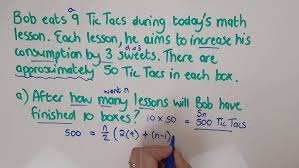 Bob eats 9 TicTacs during today's math
lesson. Each lesson, he aims to increase his
consumption by 3 sweets. There are
d=3
approximately 50 TicTacs in each box.
want n
a) After how many lessons will Bob have
finished 10 boxes? 10 x 50 = 500 TicTacs
Sn
500 = n/2 (2(9) + (n-1)